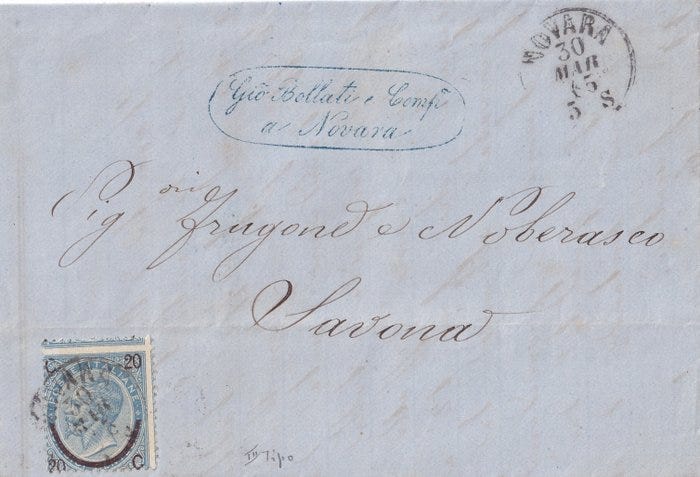 NOVARA
30
MAR
65
5 S.
Giō Bollati e Comp.
a Novara
Sig.ori Frugone e Noberasco
Savona
C 20
NOVARA
30
MAR
20 C
III Tipo